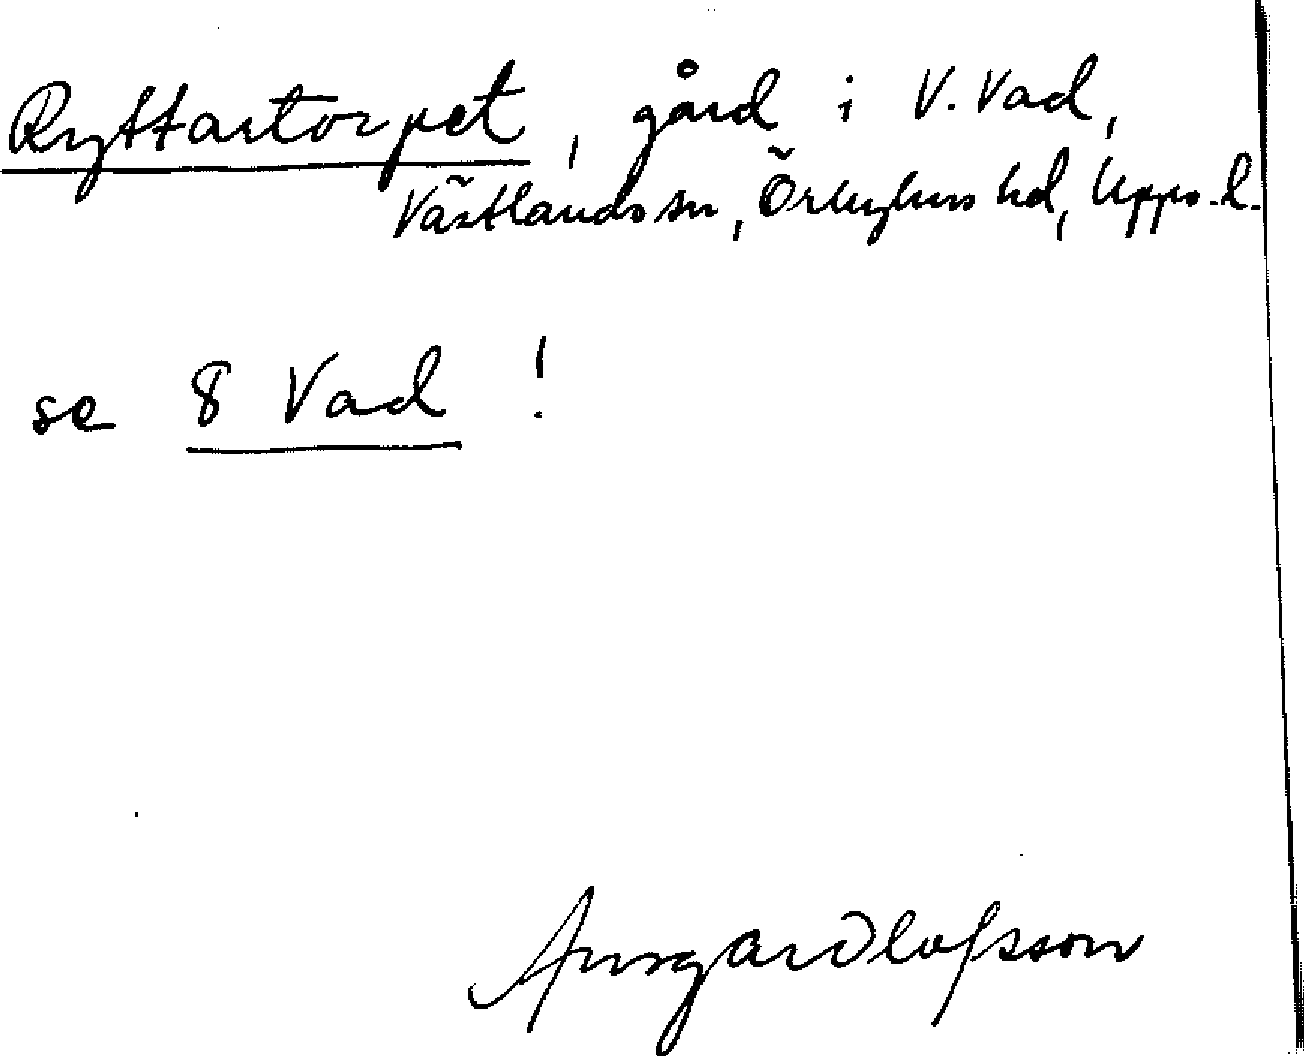 Ryttartorpet, gård i V. Vad,
Västlands sn, Örbyhus hd, Upps. l.
se 8 Vad !
Ansgar Olofsson